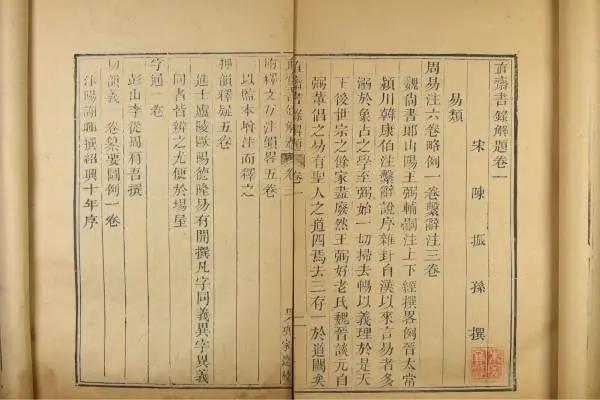 直齋書錄解題卷一
宋 陳振孫 撰
易類
周易注六卷略例一卷繫辭注三卷
魏尚書郎山陽王弼輔嗣注上下經撰畧例晉太常
潁川韓康伯注繫辭說序雜卦自漢以來言易者多
溺於象占之學至弼始一切掃去暢以義理於是天
下後世宗之餘家盡廢然王弼好老氏魏晉談元自
弼輩倡之易有聖人之道四焉去三存一於道闕矣
直齋書錄解題 卷三
附釋文互注韻畧五卷
以監本增注而釋之
押韻釋疑五卷
進士廬陵歐陽德隆易有開撰凡字同義異字異義
同者皆辨之尤便於場屋
字通一卷
彭山李從周肩吾撰
切韻義一卷纂要圖例一卷
謝暉撰紹興十年序